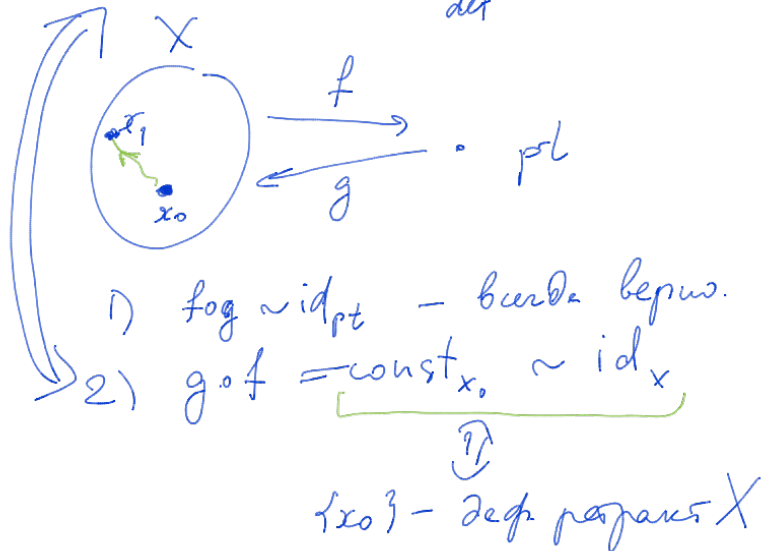 def
X
f
x₁
g
pt
x₀
1) f∘g ~ id_pt – всегда верно.
2) g∘f = const_x₀ ~ id_X
{x₀} – деф. ретракт X